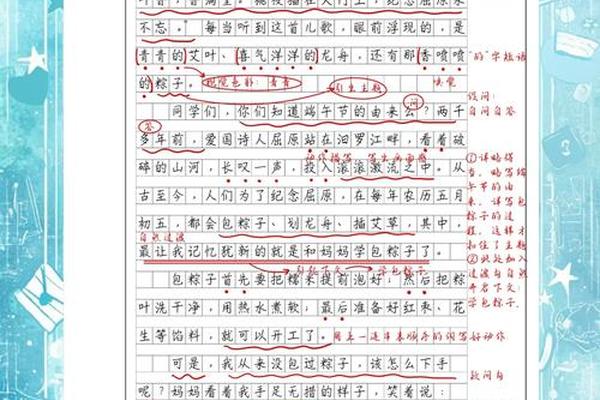 不忘。每当听到这首儿歌，眼前浮现的，是
青青的艾叶、喜气洋洋的龙舟，还有那香喷喷
"的"字短语
的粽子。
视觉色彩：青青
引出主题
嗅觉
问
设问：
自问自答
同学们，你们知道端午节的由来么？两千
答
多年前，爱国诗人屈原站在汨罗江畔，看着破
动作描写
碎的山河，长叹一声，投入滚滚激流之中。从
古至今，人们为了纪念屈原，在每年农历五月
初五，都会包粽子、划龙舟、插艾草，其中，
自然过渡
最让我记忆犹新的就是和妈妈学包粽子了。
引起下文
学包粽子
①详略得
当，略写端
午节的由
来，详写包
粽子的过
程，这样才
扣住了主题
②此处加入
过渡句自然
开启下文：
学包粽子。
包粽子首先要把糯米提前泡好，然后把粽
叶洗干净，用热水煮软，最后准备好红枣、花
生等馅料，就可以开工了。
用上一连串表顺序的词写好动作
可是，我从来没包过粽子，该怎么下手
疑问句
呢？妈妈看着我手足无措的样子，笑着说：